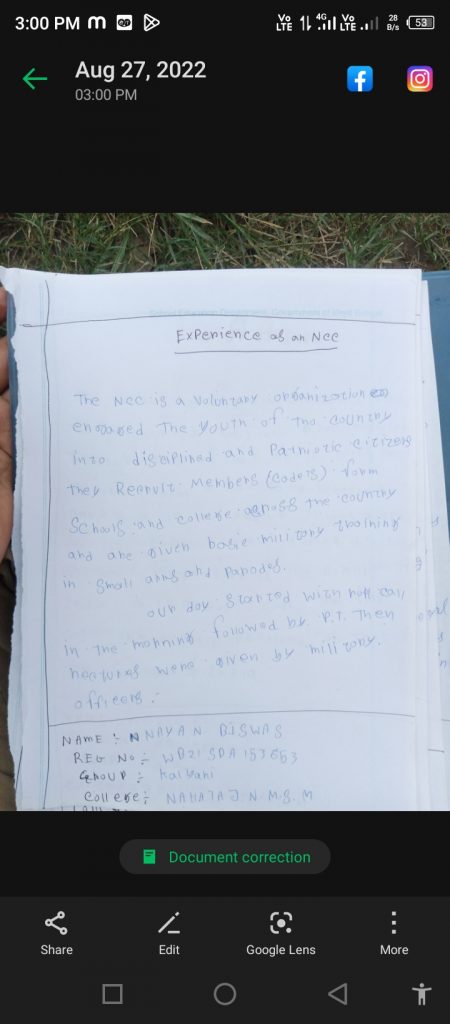 3:00 PM
Vo LTE 4G Vo LTE 28 B/s 53
Aug 27, 2022
03:00 PM
Experience as an NCC
The NCC is a Voluntary organization
engaged The Youth of the country
into disciplined and Patriotic citizens
they Recruit Members (cadets) form
Schools and college across the country
and are given basic military training
in Small arms and Parades.
our day Started with roll call
in the morning followed by P.T. Then
were given by military
officers.
NAME :- NAYAN BISWAS
REG No :- WB21SDA157653
Group : Kalyani
College:- NAHATA J.N.M.S.M
Document correction
Share
Edit
Google Lens
More